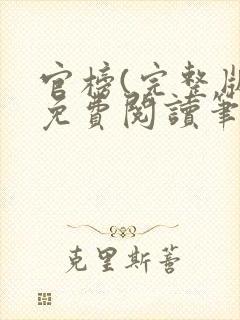 官榜(完整版
免費閱讀筆
克里斯薈